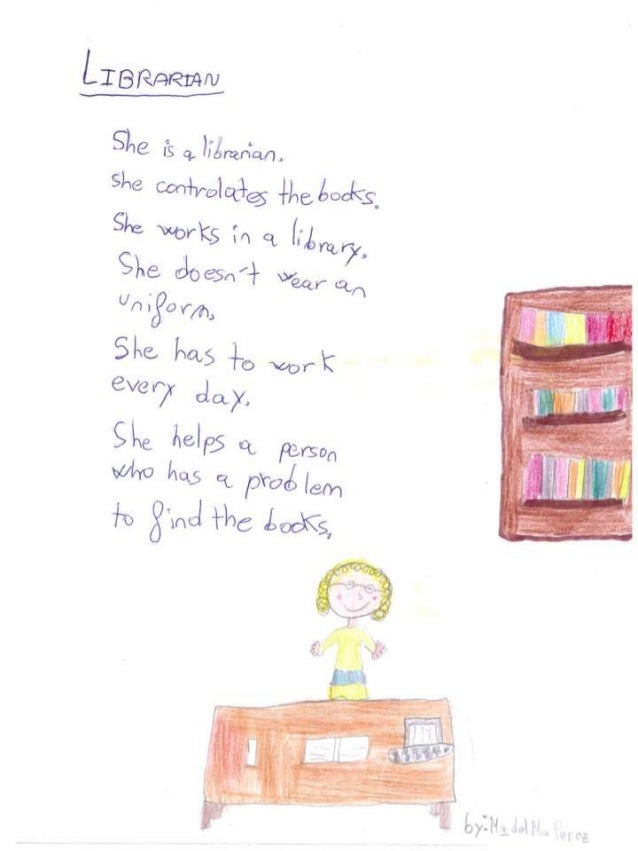 LIBRARIAN
She is a librarian.
she controlates the books.
She works in a library.
She doesn't wear an
uniform.
She has to work
every day.
She helps a person
who has a problem
to find the books.
by: Mª del Mar Perez